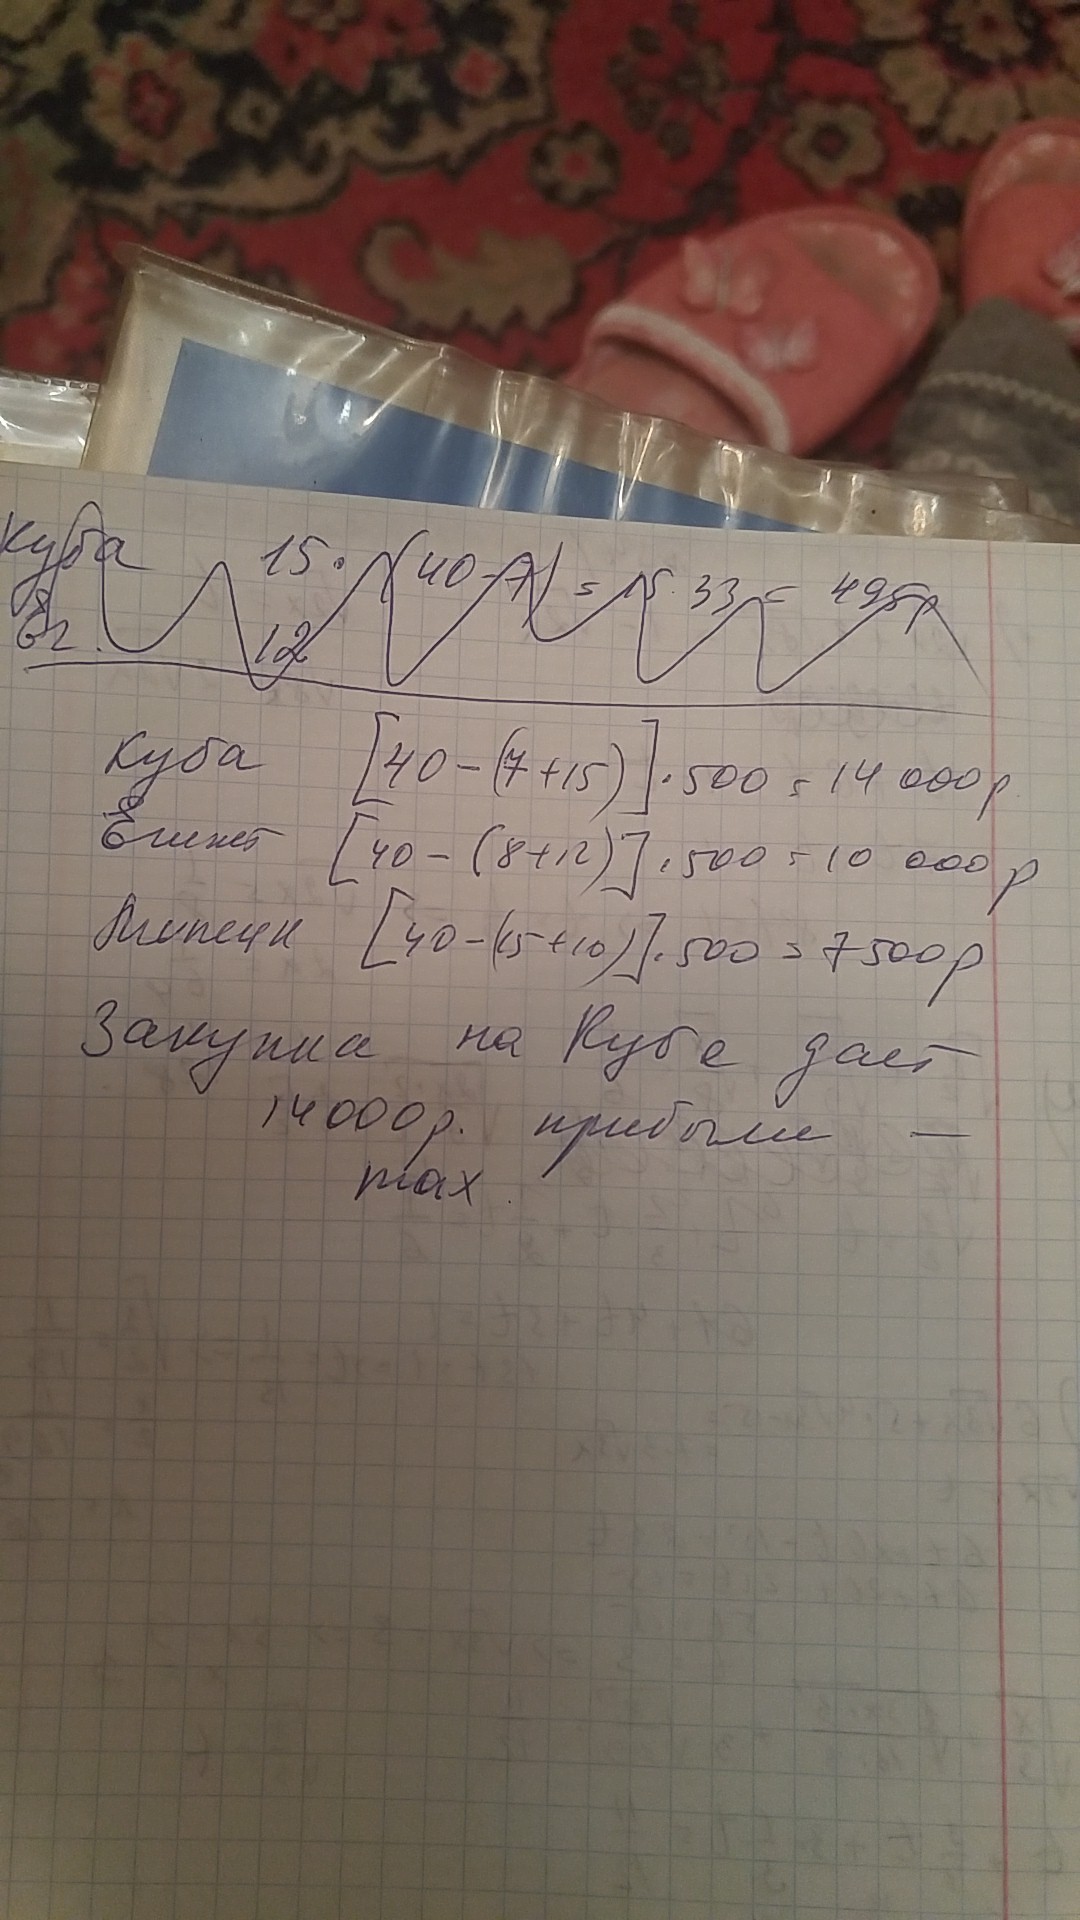 Куба 15·(40-7) = 15·33 = 495р
Ег. 12
Куба [40-(7+15)]·500 = 14 000р
Египет [40-(8+12)]·500 = 10 000р
Липецк [40-(15+10)]·500 = 7500р
Закупка на Кубе дает
14000р. прибыли —
max.